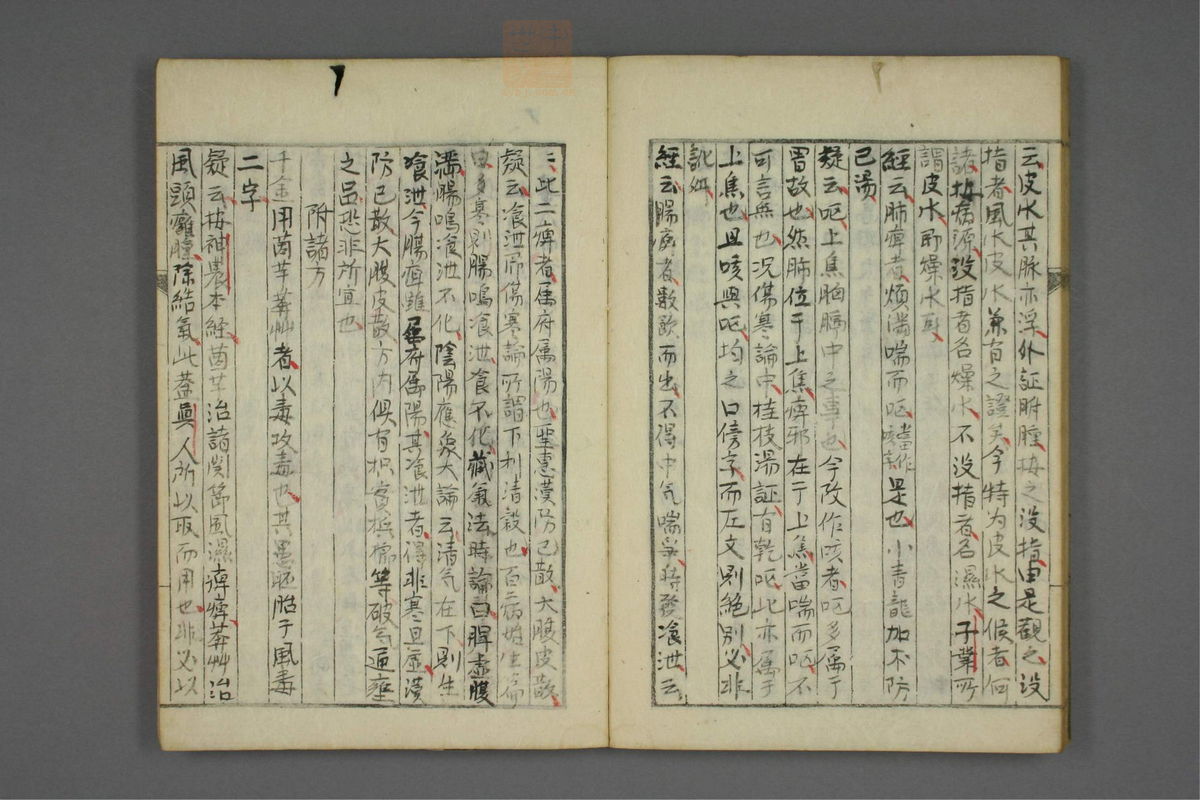 云皮水其脉亦浮外証胕腫按之没指由是觀之没
指者風水皮水兼有之證矣今特为皮水之候者何
諸按病源没指者名燥水不没指者名濕水子業所
謂皮水即燥水耳
經云肺痺者煩滿喘而呕嘔當作咳是也小青龍加木防
已湯
疑云呕上焦胸膈中之事也今改作咳者呕多属于
胃故也然肺位于上焦痺邪在于上焦當喘而呕不
可言無也况傷寒論中桂枝湯証有乾呕此亦属于
上焦也且咳與呕均之口傍字而压文則絶別必非
訛舛
經云腸痺者数飲而出不得中气喘争時發飡泄云
云此二痺者属府属陽也聖惠漢防已散大腹皮散
疑云飡泄即傷寒論所謂下利清穀也百病始生篇
曰多寒則腸鳴飡泄食不化藏氣法時論曰脾虚腹
滿腸鳴飡泄不化陰陽應象大論云清气在下則生
飡泄今腸痺雖属府属陽其飡泄者得非寒且虚漢
防已散大腹皮散方内俱有枳売檳榔等破气通壅
之品恐非所宜也
附諸方
千金用茵芋莽艸者以毒攻毒也其愚眩胎于風毒
二字
疑云按神農本經茵芋治諸関節風濕痺痺莽艸治
風頭癰腫除結氣此葢眞人所以取而用也非必以